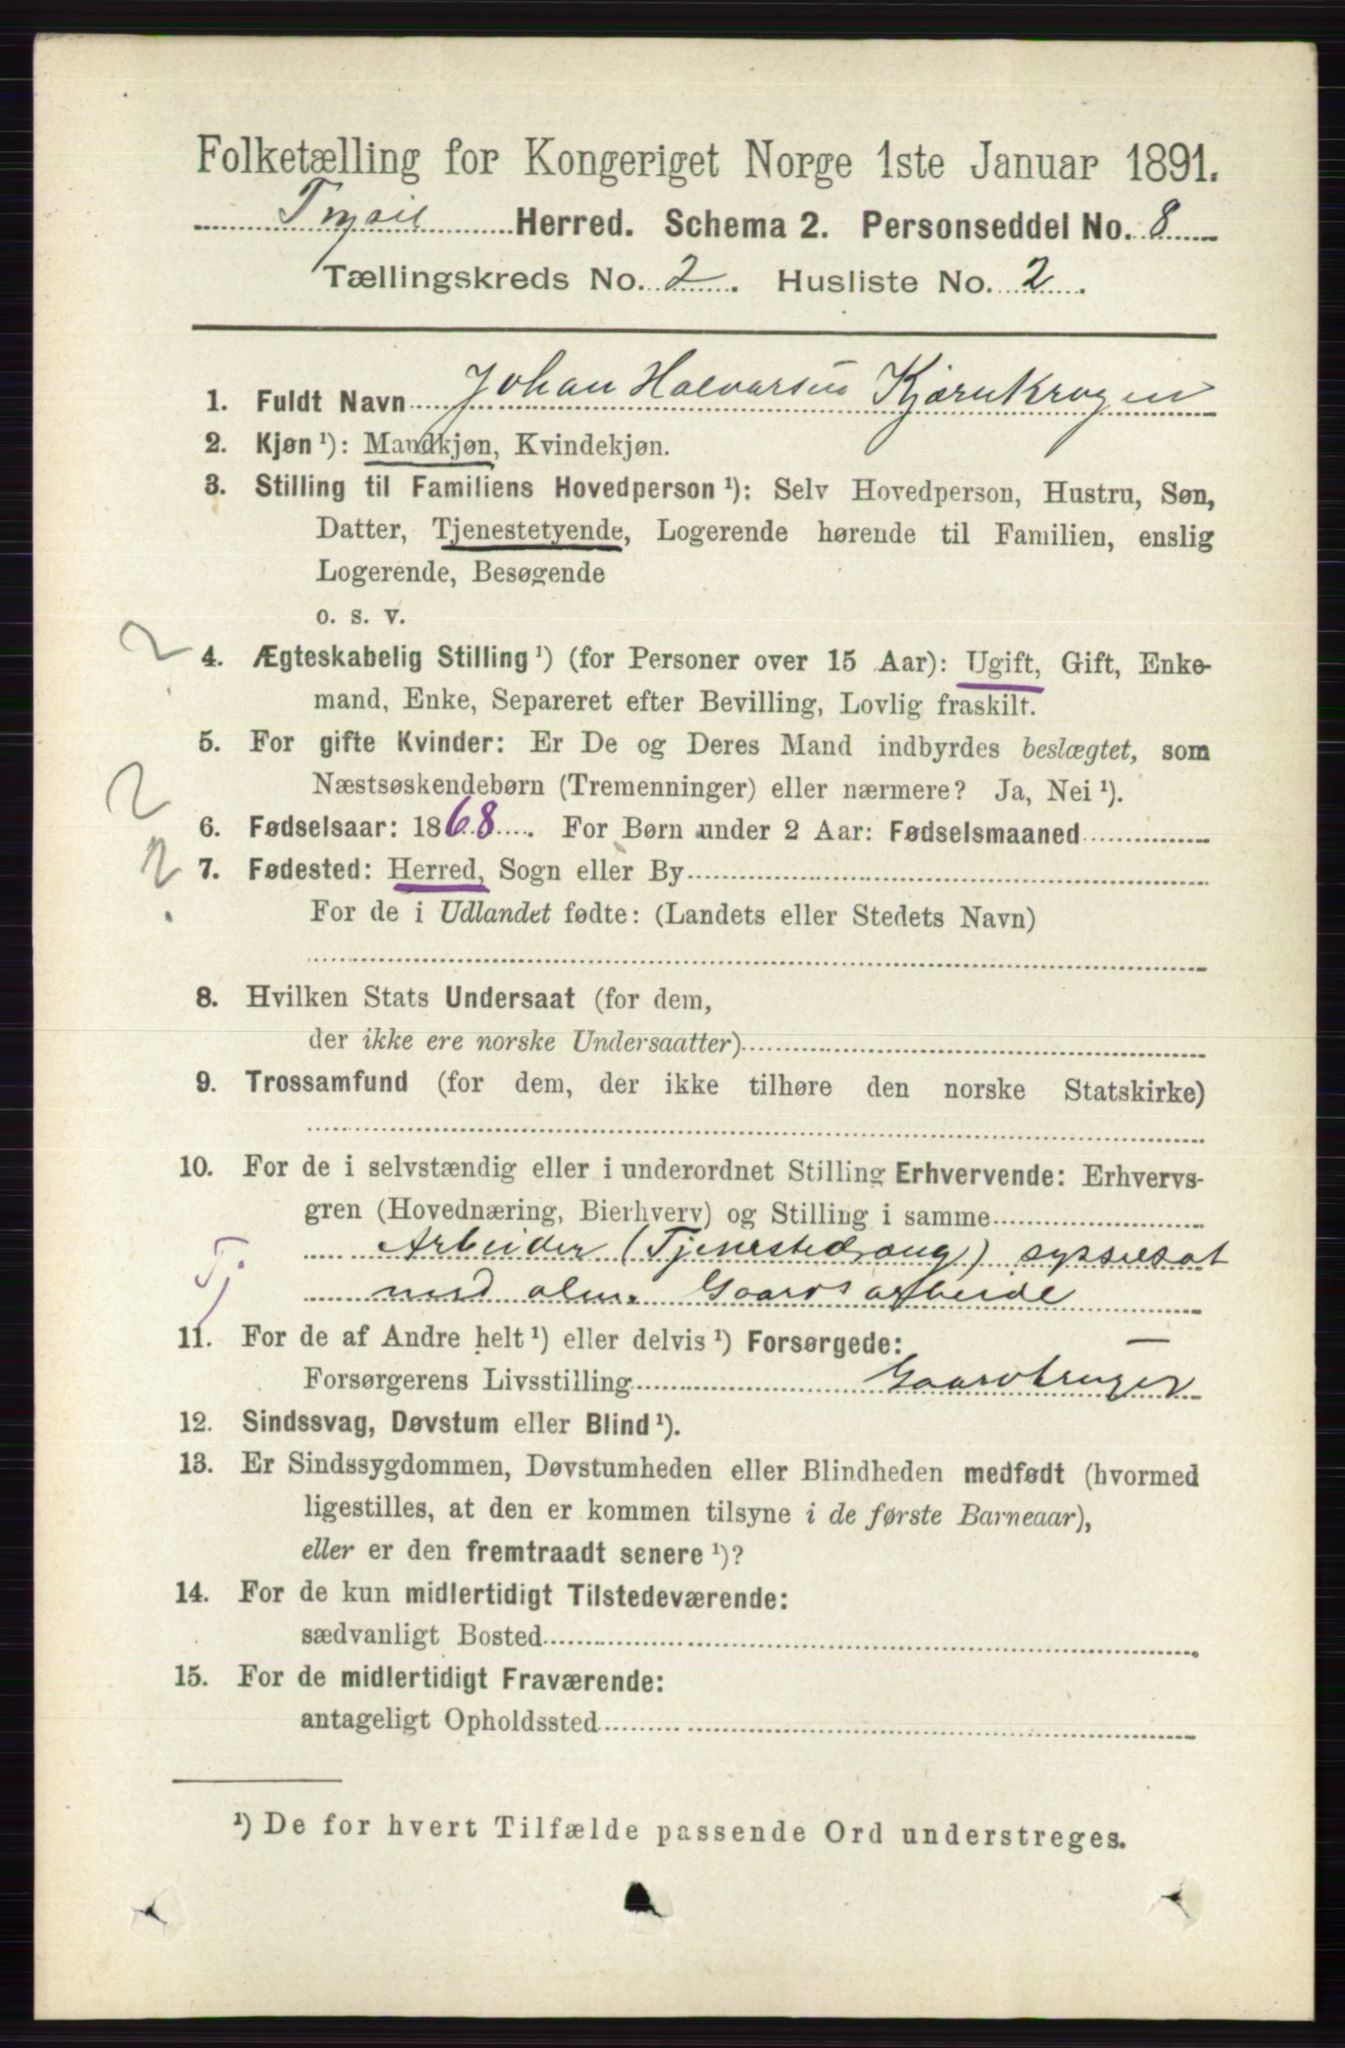 Folketælling for Kongeriget Norge 1ste Januar 1891.
Trysil Herred. Schema 2. Personseddel No. 8
Tællingskreds No. 2. Husliste No. 2.
1. Fuldt Navn Johan Halvorsen Kjærnkrogen
2. Kjøn ¹): Mandkjøn, Kvindekjøn.
3. Stilling til Familiens Hovedperson ¹): Selv Hovedperson, Hustru, Søn,
Datter, Tjenestetyende, Logerende hørende til Familien, enslig
Logerende, Besøgende
o. s. v.
2
4. Ægteskabelig Stilling ¹) (for Personer over 15 Aar): Ugift, Gift, Enke-
mand, Enke, Separeret efter Bevilling, Lovlig fraskilt.
5. For gifte Kvinder: Er De og Deres Mand indbyrdes beslægtet, som
Næstsøskendebørn (Tremenninger) eller nærmere? Ja, Nei ¹).
2
6. Fødselsaar: 1868. For Børn under 2 Aar: Fødselsmaaned
7. Fødested: Herred, Sogn eller By
For de i Udlandet fødte: (Landets eller Stedets Navn)
8. Hvilken Stats Undersaat (for dem,
der ikke ere norske Undersaatter)
9. Trossamfund (for dem, der ikke tilhøre den norske Statskirke)
10. For de i selvstændig eller i underordnet Stilling Erhvervende: Erhvervs-
gren (Hovednæring, Bierhverv) og Stilling i samme
Arbeider (Tjenestedrang) sysselsat
Tj. med alm. Gaardsarbeide
11. For de af Andre helt ¹) eller delvis ¹) Forsørgede:
Forsørgerens Livsstilling Gaardbruger
12. Sindssvag, Døvstum eller Blind ¹).
13. Er Sindssygdommen, Døvstumheden eller Blindheden medfødt (hvormed
ligestilles, at den er kommen tilsyne i de første Barneaar),
eller er den fremtraadt senere ¹)?
14. For de kun midlertidigt Tilstedeværende:
sædvanligt Bosted
15. For de midlertidigt Fraværende:
antageligt Opholdssted
¹) De for hvert Tilfælde passende Ord understreges.